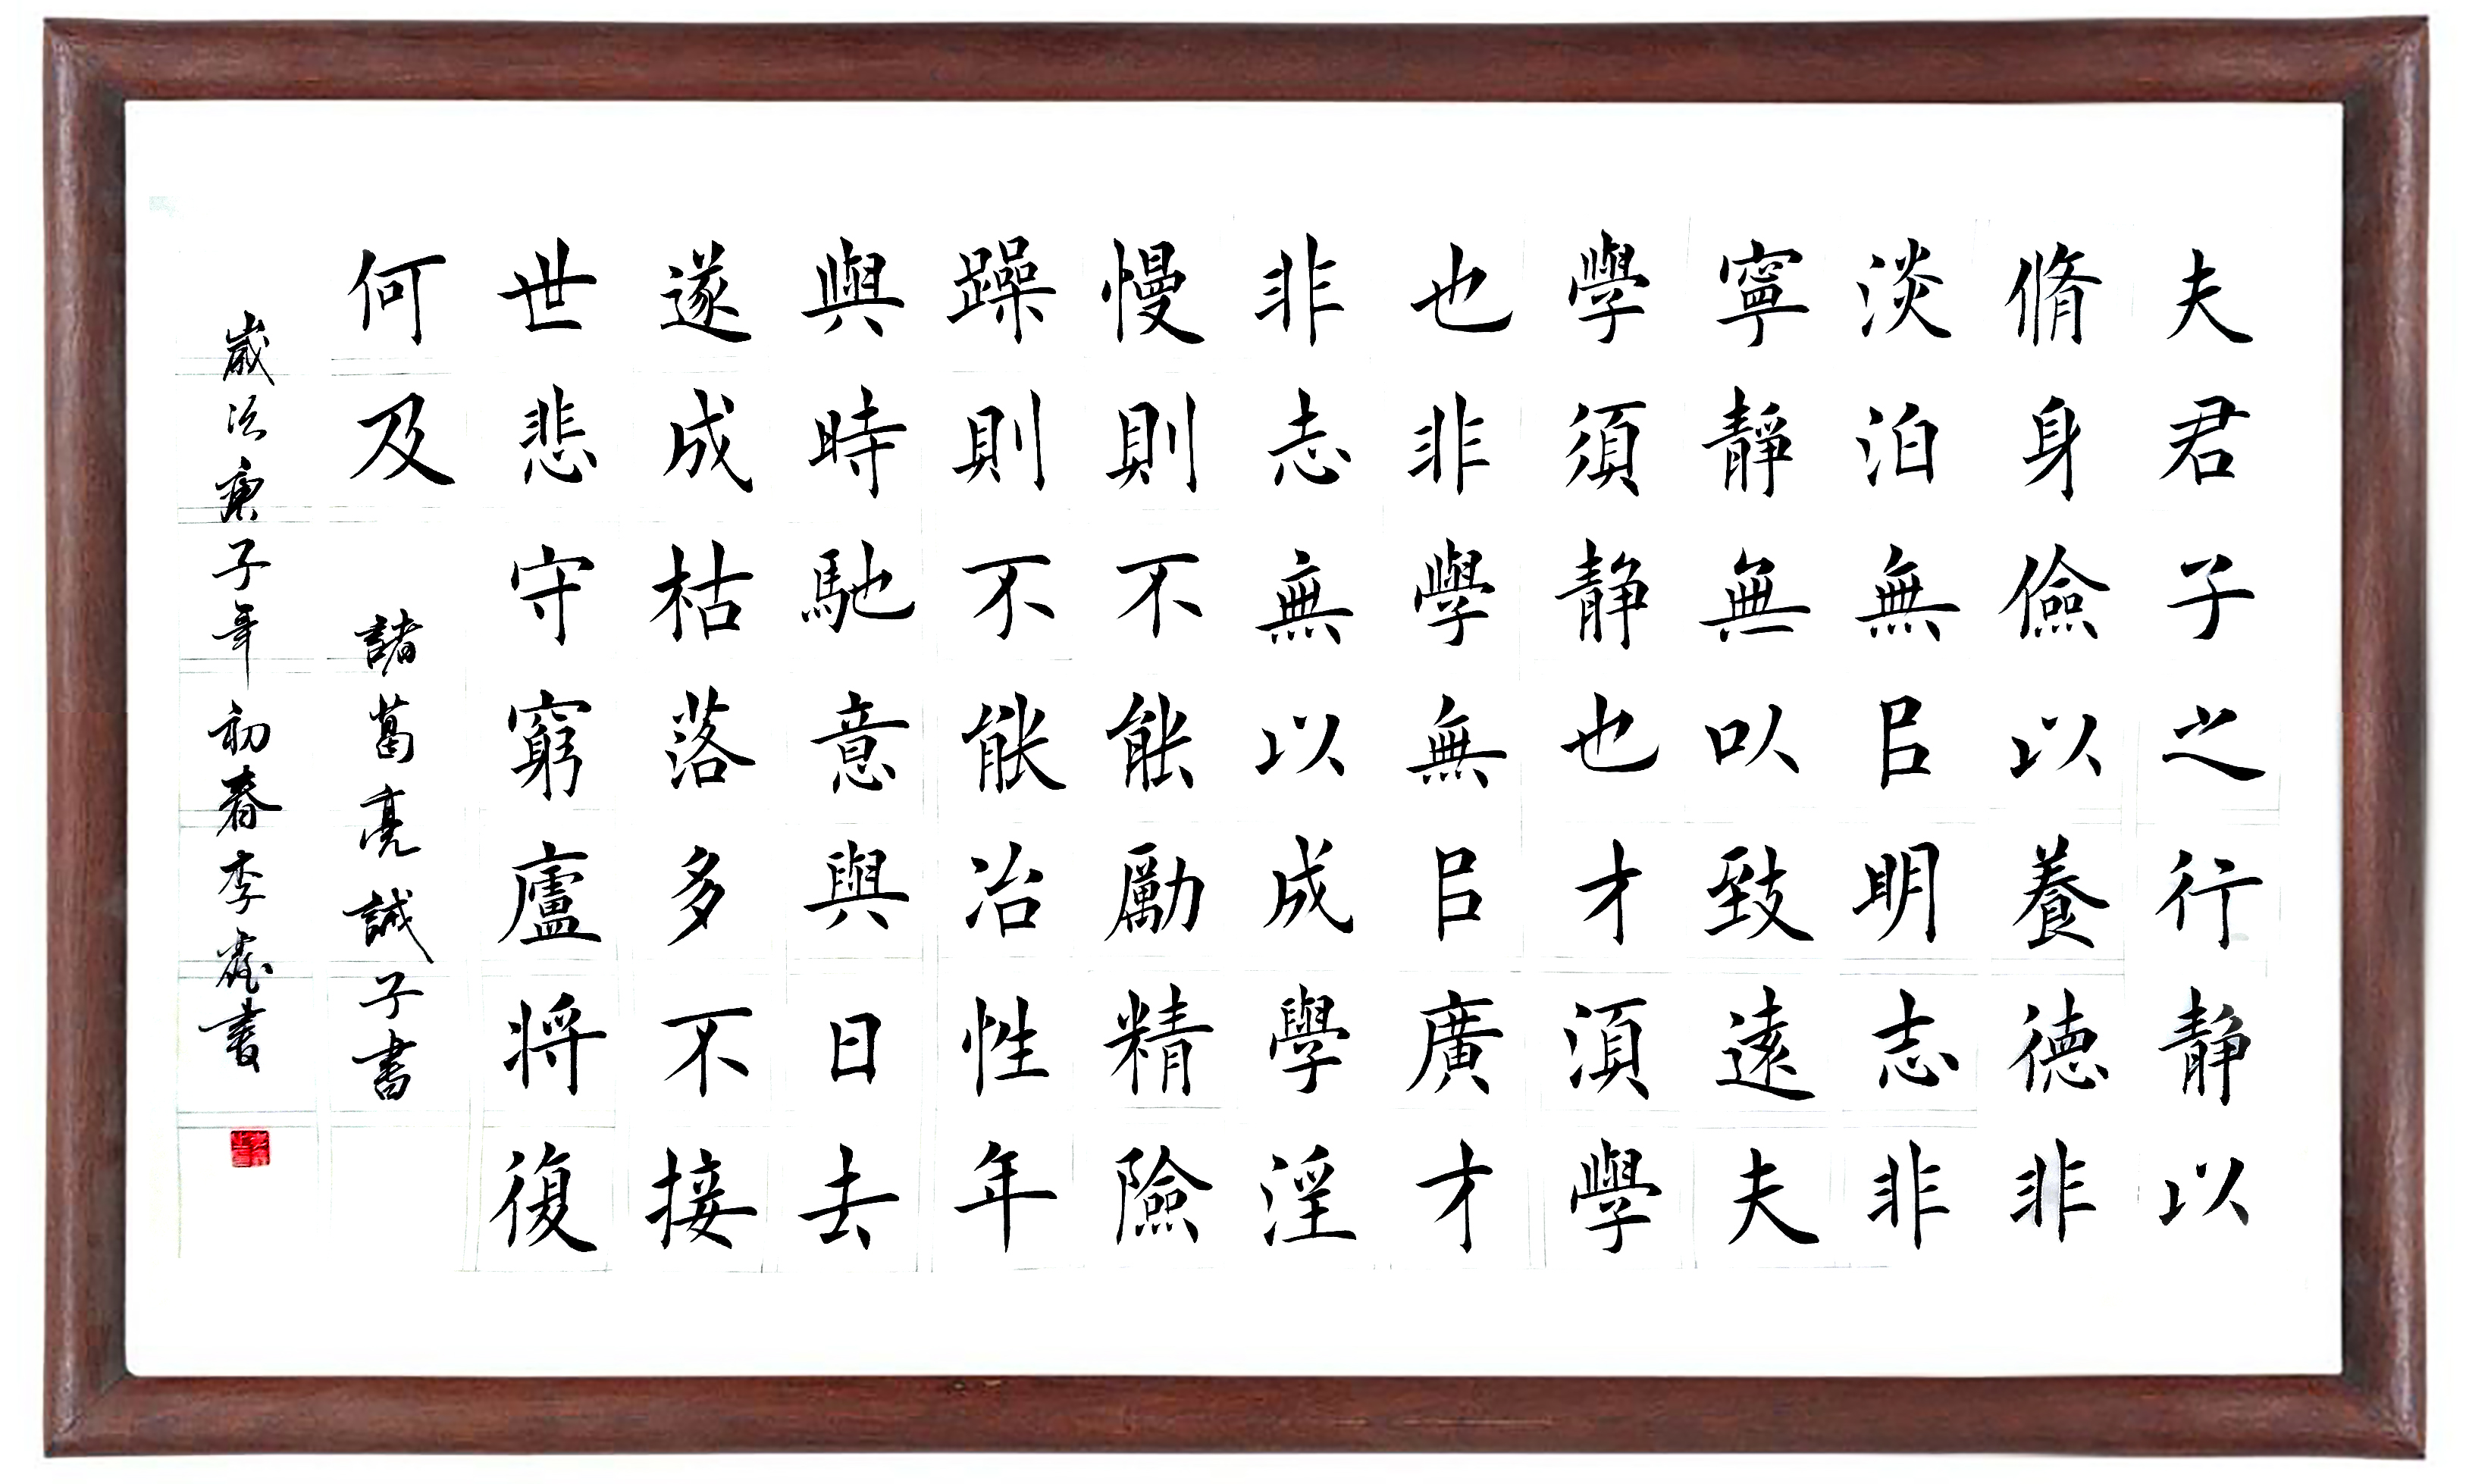 夫君子之行静以
脩身儉以養德非
淡泊無㠯明志非
寧靜無以致遠夫
學須静也才須學
也非學無㠯廣才
非志無以成學淫
慢則不能勵精險
躁則不能冶性年
與時馳意與日去
遂成枯落多不接
世悲守窮廬將復
何及 諸葛亮誡子書
歲次庚子年初春李書